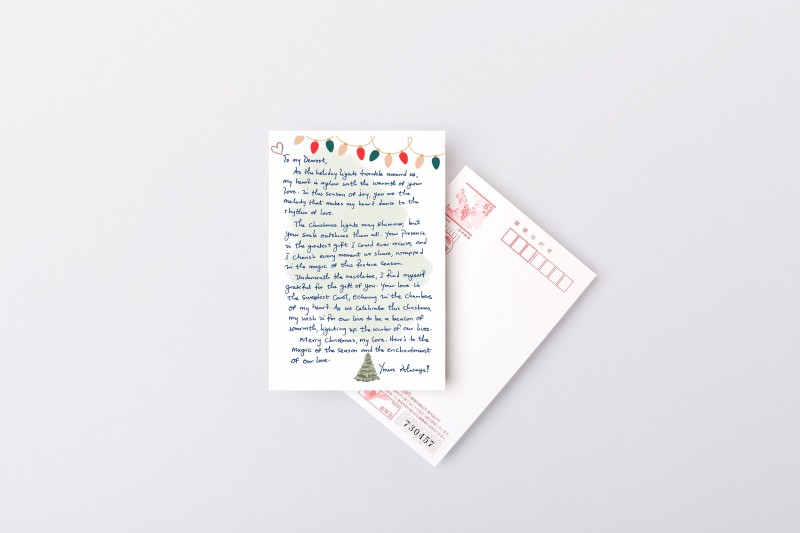 To my Dearest,
As the holiday lights twinkle around us,
my heart is aglow with the warmth of your
love. In this season of joy, you are the
melody that makes my heart dance to the
rhythm of love.
The Christmas lights may shimmer, but
your smile outshines them all. Your presence
is the greatest gift I could ever receive, and
I cherish every moment we share, wrapped
in the magic of this festive season.
Underneath the mistletoe, I find myself
grateful for the gift of you. Your love is
the sweetest carol, echoing in the chambers
of my heart. As we celebrate this Christmas,
my wish is for our love to be a beacon of
warmth, lighting up the winter of our lives.
Merry Christmas, my love. Here's to the
magic of the season and the enchantment
of our love.
Yours Always!
63
郵便はがき
730457